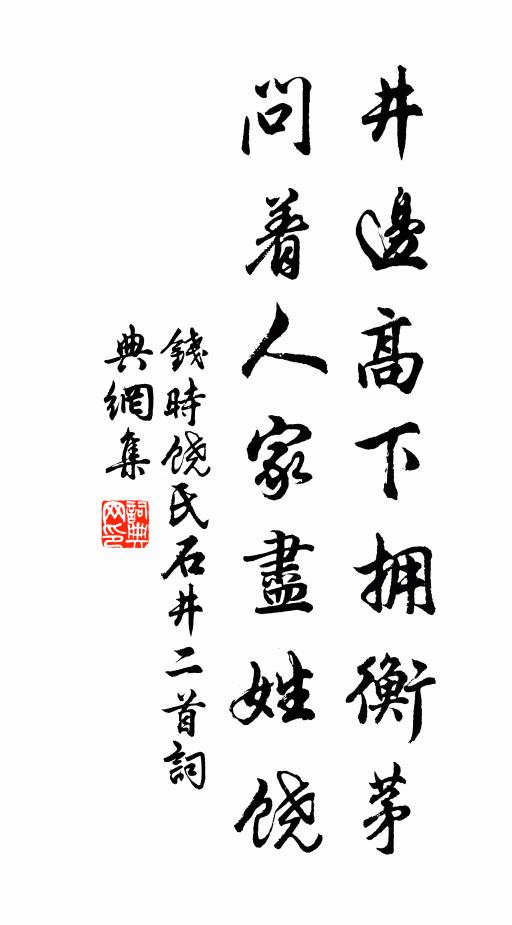 井邊高下拥衡茅
問着人家盡姓饶
錢時饶氏石井二首詞
典網集
詞典网印